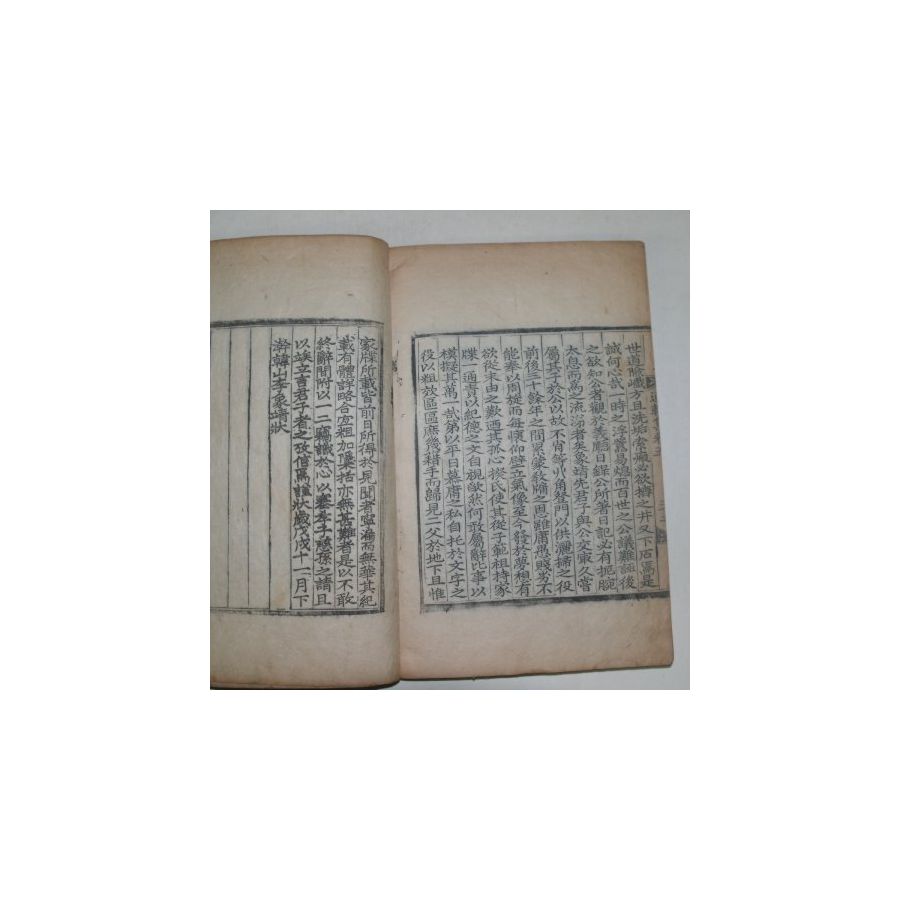 世道險巇方且洗垢索瘢必欲擠之井又下石焉是
誠何心哉一時之浮薰易熄而百世之公議難誣後
之欲知公者觀於嘉廳日錄公所著日記必有扼腕
太息而爲之流涕者矣象靖先君子與公交最久嘗
屬其子於公以故不肖等丱角登門以供灑掃之役
前後二十餘年之間累蒙鐫牖之恩雖庸愚賤劣不
能奉以周旋而每煩仰壁立氣像至今發於夢想有
欲從末由之歎適其孤心揆氏使其從子範祖持家
牒一通責以紀德之文自視欿然何敢屬辭比事以
模擬其萬一哉第以平日慕庸之私自托於文字之
役以粗效區區庶幾藉手而歸見二父於地下且惟
家牒所載皆前日所得於見聞者寧漏而無華其紀
載有體詳略合宜粗加檃括亦無甚難者是以不敢
終辭間附以一二竊識於心以塞孝子慈孫之請且
以竢立言君子者之攷信焉謹狀歲戊戌十一月下
澣韓山李象靖狀